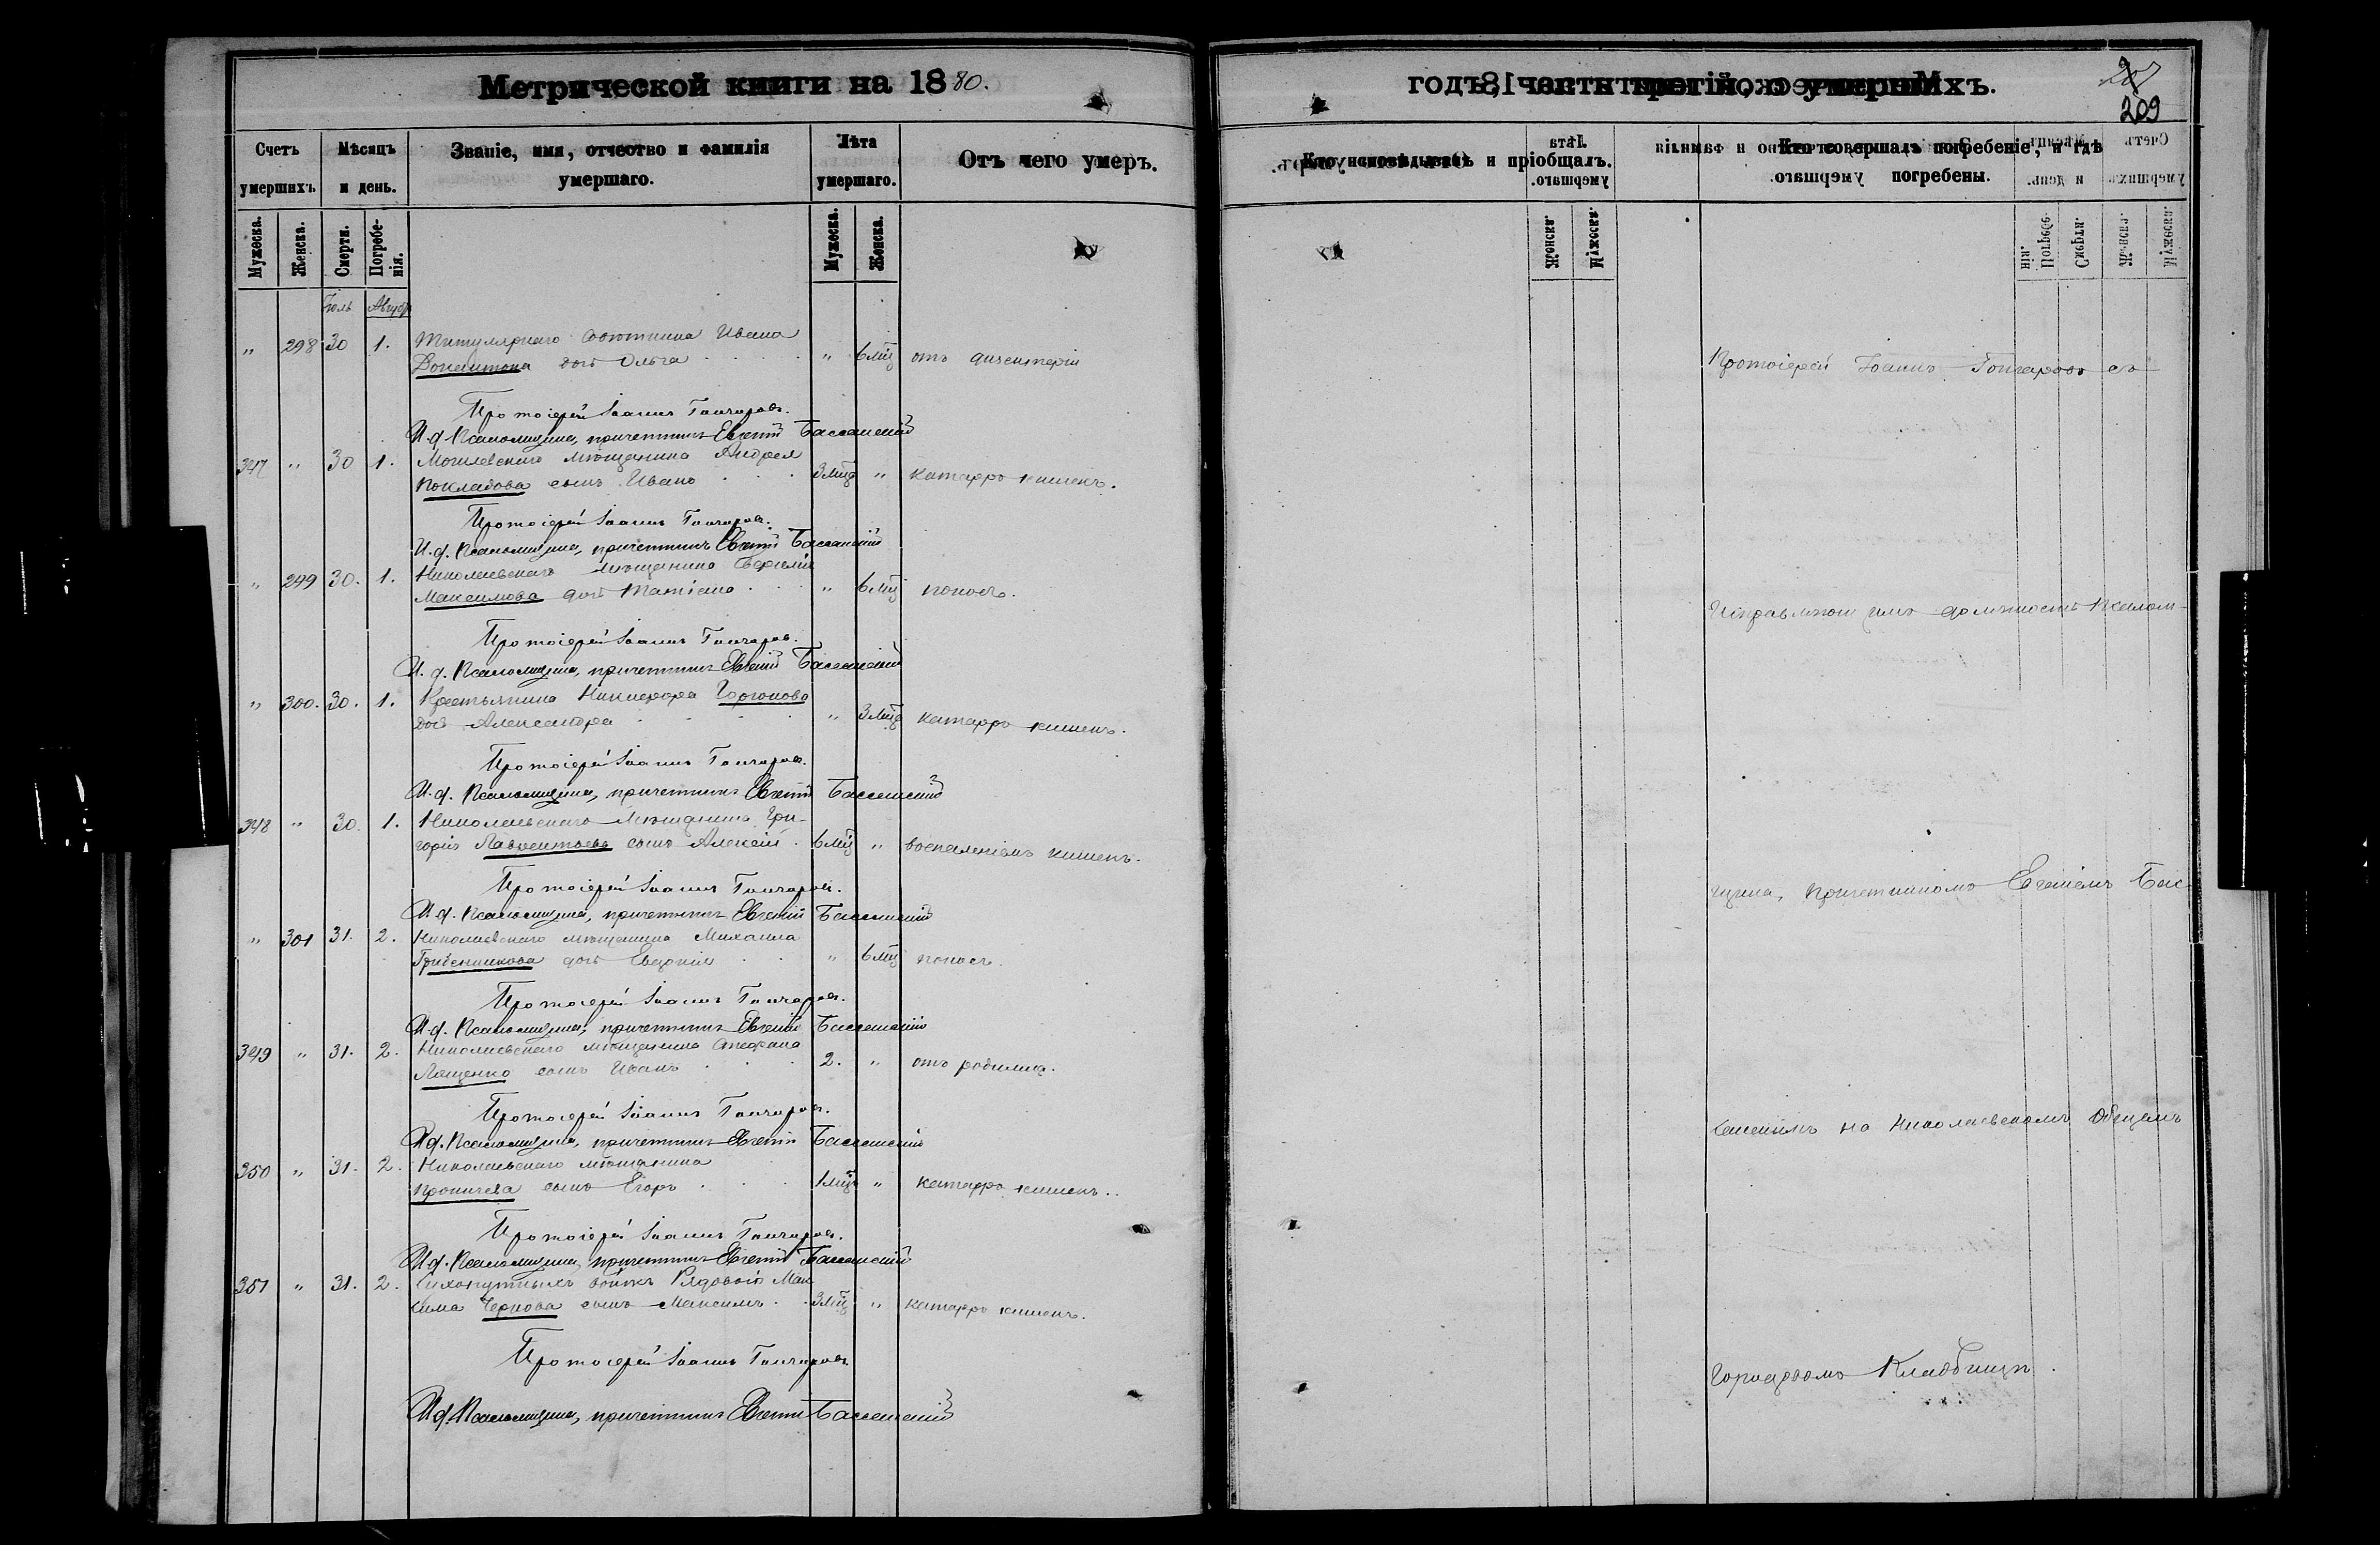 Метрической книги на 1880.
годъ, часть третій, о умершихъ.
209
Счетъ умершихъ.
Мѣсяцъ и день.
Званіе, имя, отчество и фамилія умершаго.
Лѣта умершаго.
Отъ чего умеръ.
Кто исповѣдывалъ и пріобщалъ.
Кто совершалъ погребеніе, и гдѣ погребены.
Мужеска. Женска. Смерти. Погребенія. Мужеска. Женска.
Іюль Августъ
" 298 30 1. Титулярнаго Совѣтника Ивана
дочь Ольга " 6 мѣц отъ дизентеріи
Протоіерей Іоаннъ Гончаровъ.
И. д. Псаломщика, причетникъ Евгеній Бассанскій
347 " 30 1. Могилевскаго мѣщанина Андрея
Покладова сынъ Иванъ 3 мѣц " катарръ кишекъ.
Протоіерей Іоаннъ Гончаровъ.
И. д. Псаломщика, причетникъ Евгеній Бассанскій
" 299 30. 1. Николаевскаго мѣщанина
Максимова дочь Татіана " 6 мѣц поносъ.
Протоіерей Іоаннъ Гончаровъ.
И. д. Псаломщика, причетникъ Евгеній Бассанскій
" 300. 30. 1. Крестьянина Никифора
дочь Александра " 3 мѣц катарръ кишекъ.
Протоіерей Іоаннъ Гончаровъ.
И. д. Псаломщика, причетникъ Евгеній Бассанскій
348 " 30. 1. Николаевскаго Мѣщанина Гри-
горія Лаврентьева сынъ Алексій 6 мѣц " воспаленіемъ кишекъ.
Протоіерей Іоаннъ Гончаровъ.
И. д. Псаломщика, причетникъ Евгеній Бассанскій
" 301 31. 2. Николаевскаго мѣщанина Михаила
Гребенникова дочь Евдокія " 6 мѣц поносъ.
Протоіерей Іоаннъ Гончаровъ.
И. д. Псаломщика, причетникъ Евгеній Бассанскій
349 " 31. 2. Николаевскаго мѣщанина Стефана
Лященко сынъ Иванъ 2. " отъ родимца.
Протоіерей Іоаннъ Гончаровъ.
И. д. Псаломщика, причетникъ Евгеній Бассанскій
350 " 31. 2. Николаевскаго мѣщанина
сынъ Егоръ 1 мѣц " катарръ кишекъ..
Протоіерей Іоаннъ Гончаровъ.
И. д. Псаломщика, причетникъ Евгеній Бассанскій
351 " 31. 2. Сухопутныхъ войскъ Рядового Мак
сима Чернова сынъ Максимъ 3 мѣц " катарръ кишекъ.
Протоіерей Іоаннъ Гончаровъ
И. д. Псаломщика, причетникъ Евгеній Бассанскій
Протоіерей Іоаннъ Гончаровъ съ
Исправляющимъ должность Псалом-
щика, причетникомъ Евгеніемъ Бас-
санскимъ на Николаевскомъ Общемъ
Городовомъ Кладбищѣ.